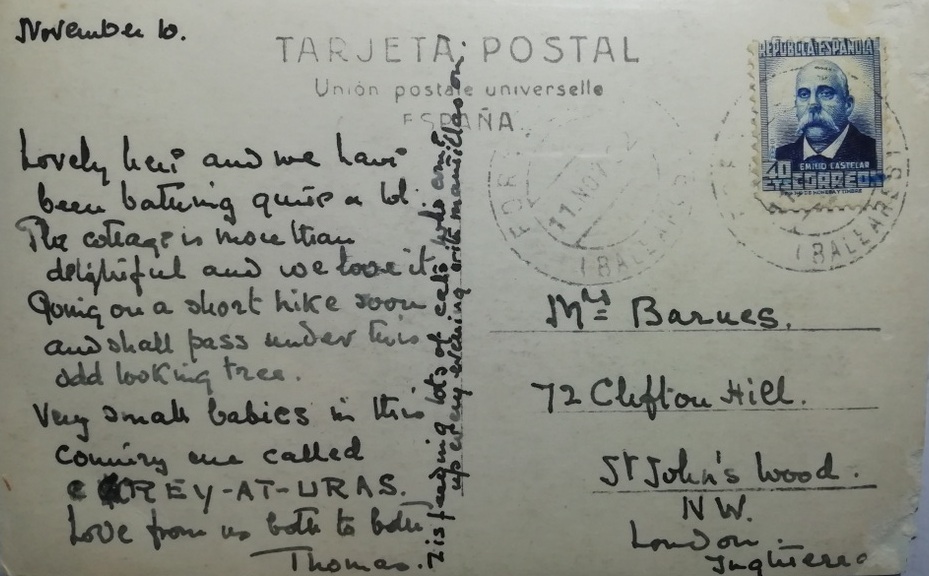 November 10.
TARJETA POSTAL
Unión postale universelle
ESPAÑA
REPUBLICA ESPAÑOLA
EMILIO CASTELAR
40 CTS CORREOS
11 NOV
(BALEARES)
(BALEARES)
Lovely here and we have
been bathing quite a lot.
The cottage is more than
delightful and we love it.
Going on a short hike soon
and shall pass under this
odd looking tree.
Very small babies in this
country are called
CREY-AT-URAS.
Love from us both to both
Thomas.
is feeding lots of cats who come
up every evening
on
Mrs Barnes.
72 Clifton Hill.
St John's Wood.
N W.
London.
Inghilterra